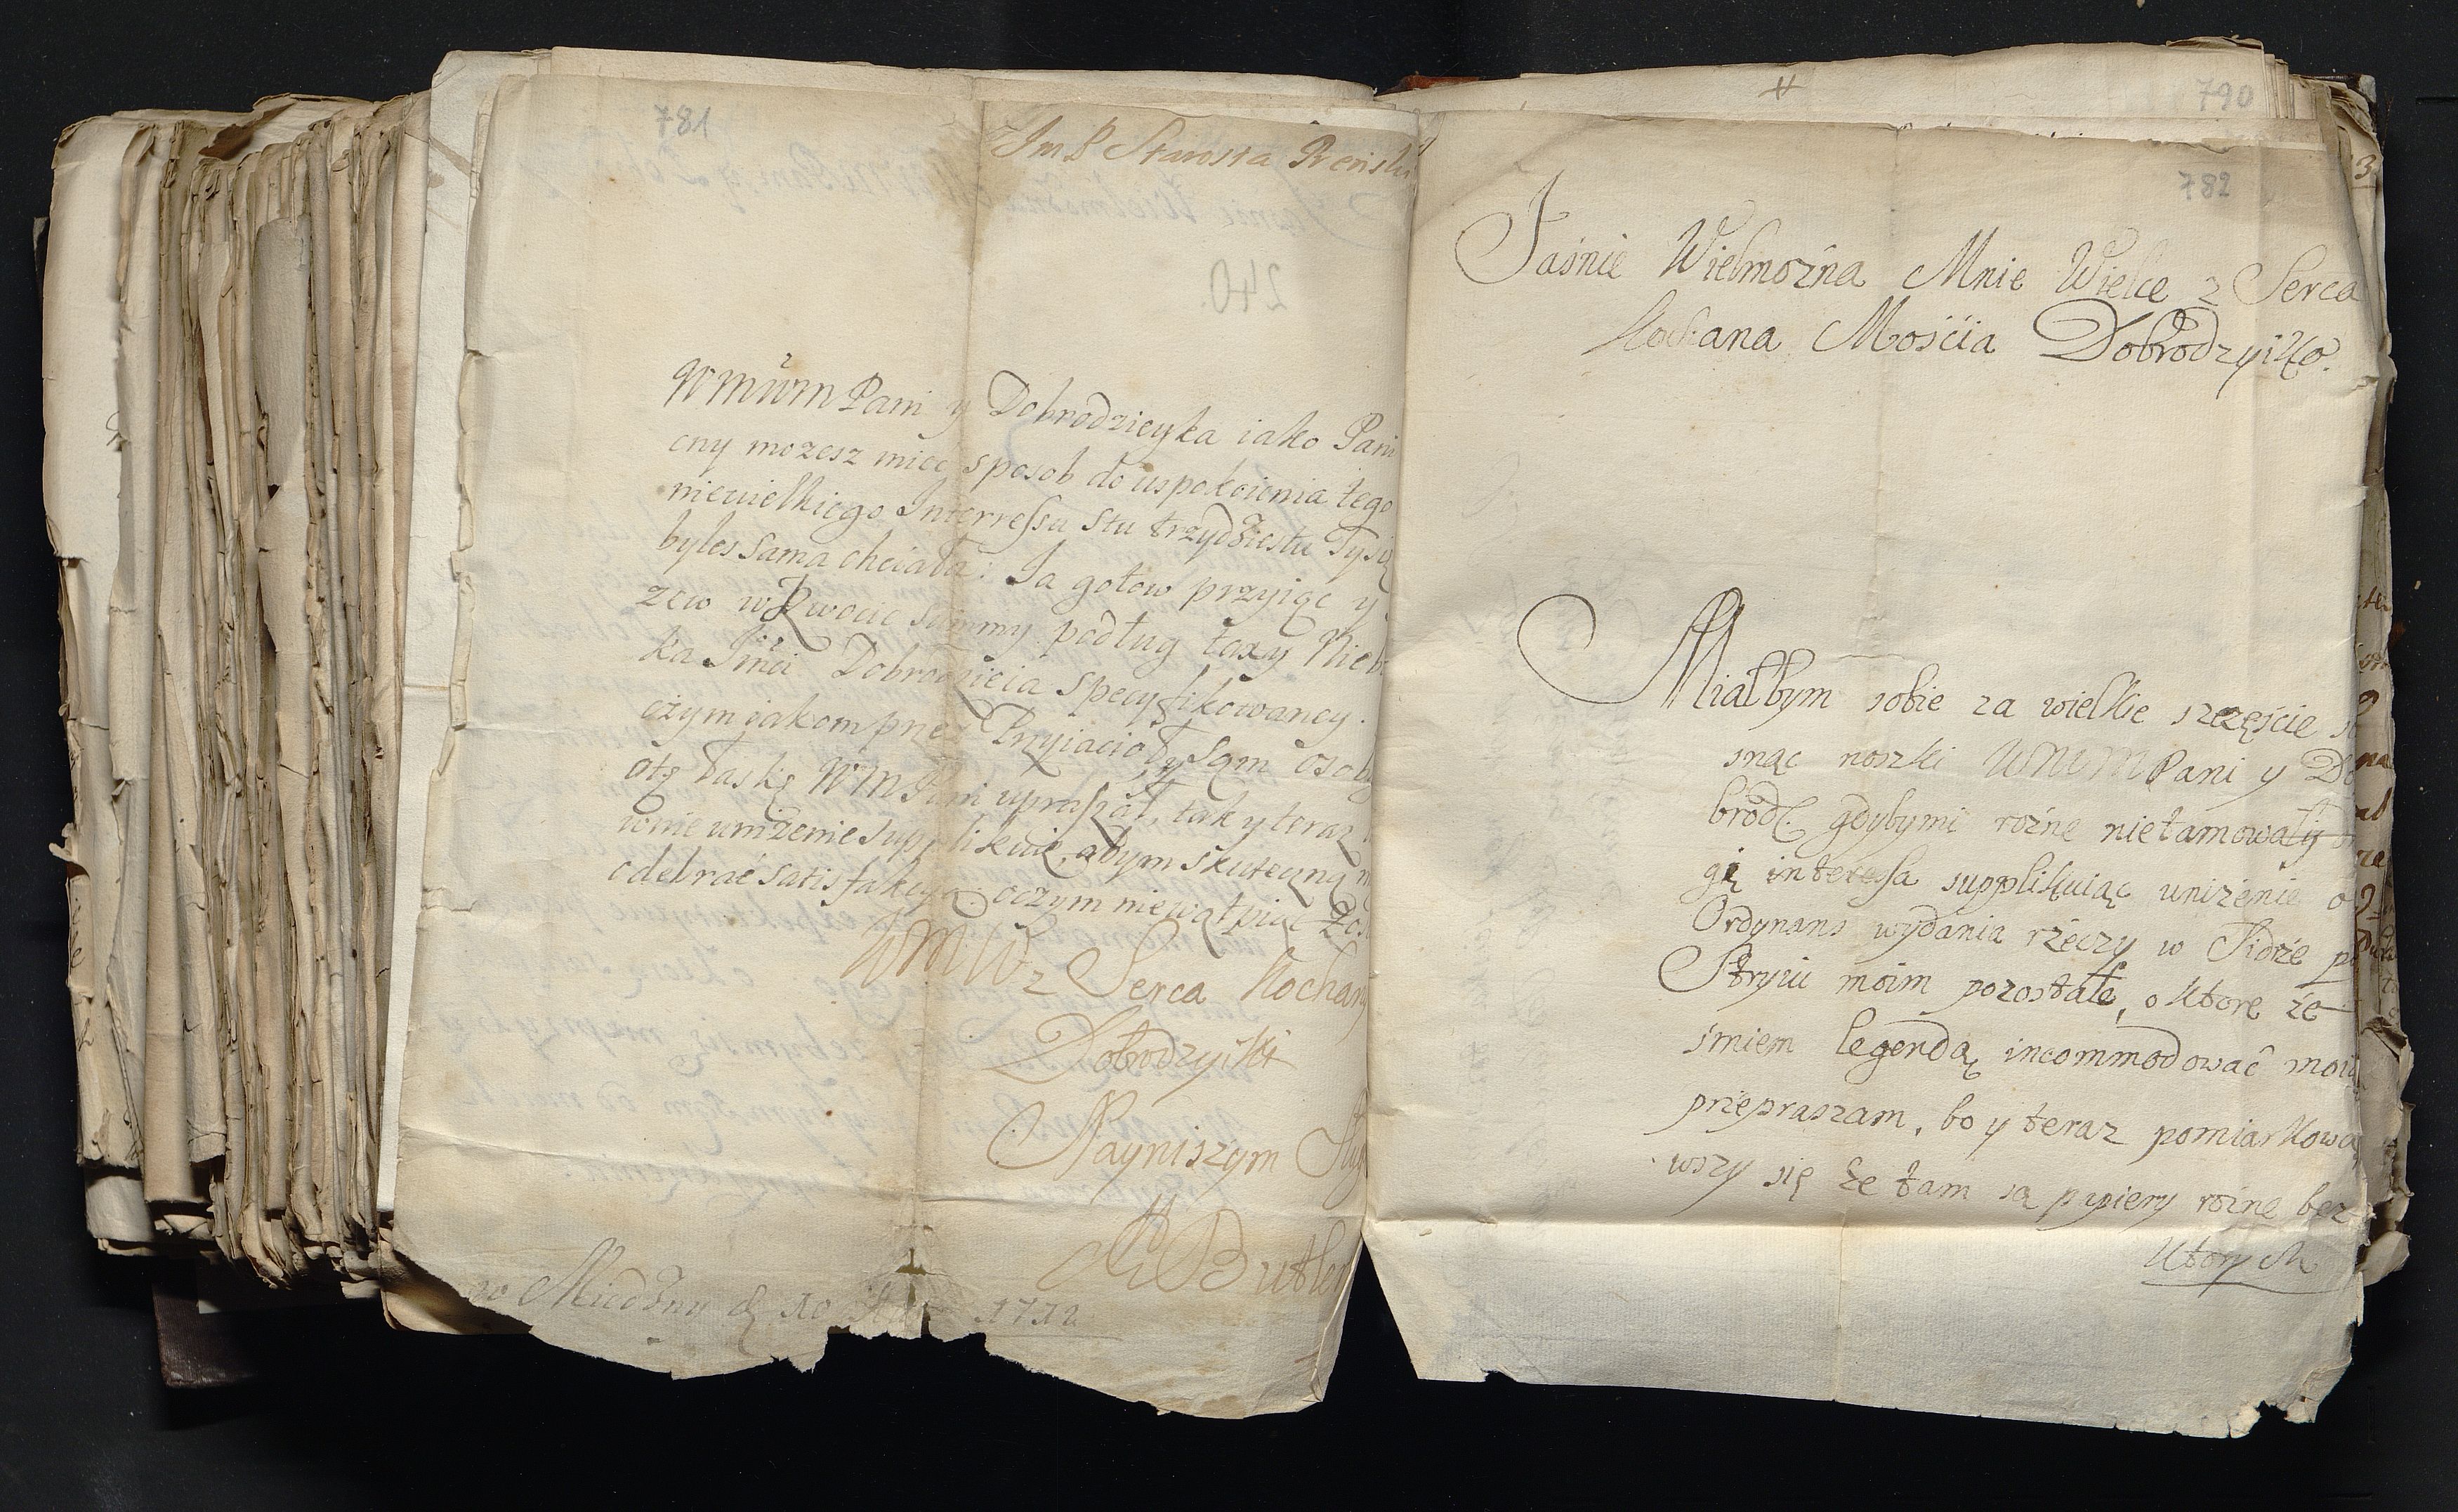 781
Im P Starosta Prenski
WMWM Pani y Dobrodzieyka iako Pani
cny mozesz miec sposob do uspokoienia tego
niewielkiego Interressu stu trzydziestu Tysią
byles sama chciała: Ja gotow przyiąc y
podług taxy
ka Jmci Dobrodzieia specyfikowaney.
czym jakom przez Przyiacioły sąm osob
otę łaskę WM Pani upraszał, tak y teraz
wnie unizenie supplikuię, abym skuteczną
odebrać satisfakcyą: oczym niewątpiąc
WMW z Serca Kochany
Dobrodzyiki
Nayniszym Slug
Butler
zo Miedzny d 10 1712
790
782
Jaśnie Wielmożna Mnie Wielce z Serca
Kochana Mościa Dobrodzyiko.
Miałbym sobie za wielkie szczęście
snąc noszki WMWM Pani y Do
brodz gdybymi rożne nietamowały
gię interessa supplikuiąc uniżenie o
Ordynans wydania rzeczy w Sidrze po
Stryiu moim pozostałe, o ktore że
śmiem legendą incommodować moią
przepraszam, bo y teraz pomiarkowa
wszy się że tam są papiery rożne bez
ktorych